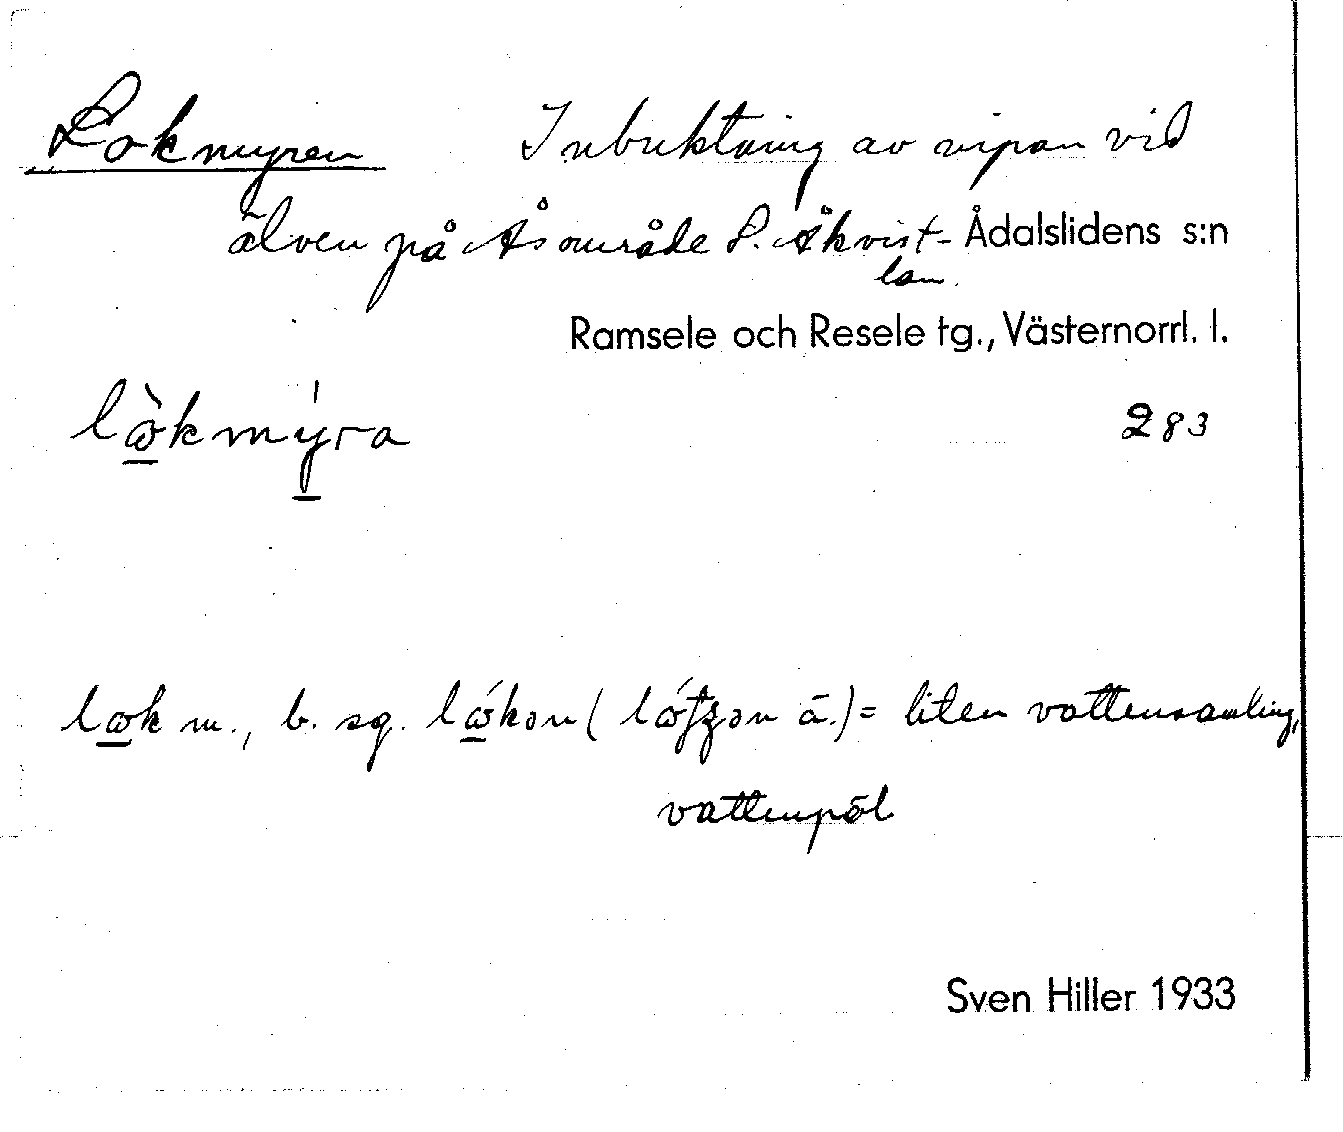 Lokmyren Inbuktning av nipan vid
älven på Ås område S. Åkvist- Ådalslidens s:n
lan.
Ramsele och Resele tg., Västernorrl. l.
283
lok m., b. sg. = liten vattensamling,
vattenpöl
Sven Hiller 1933